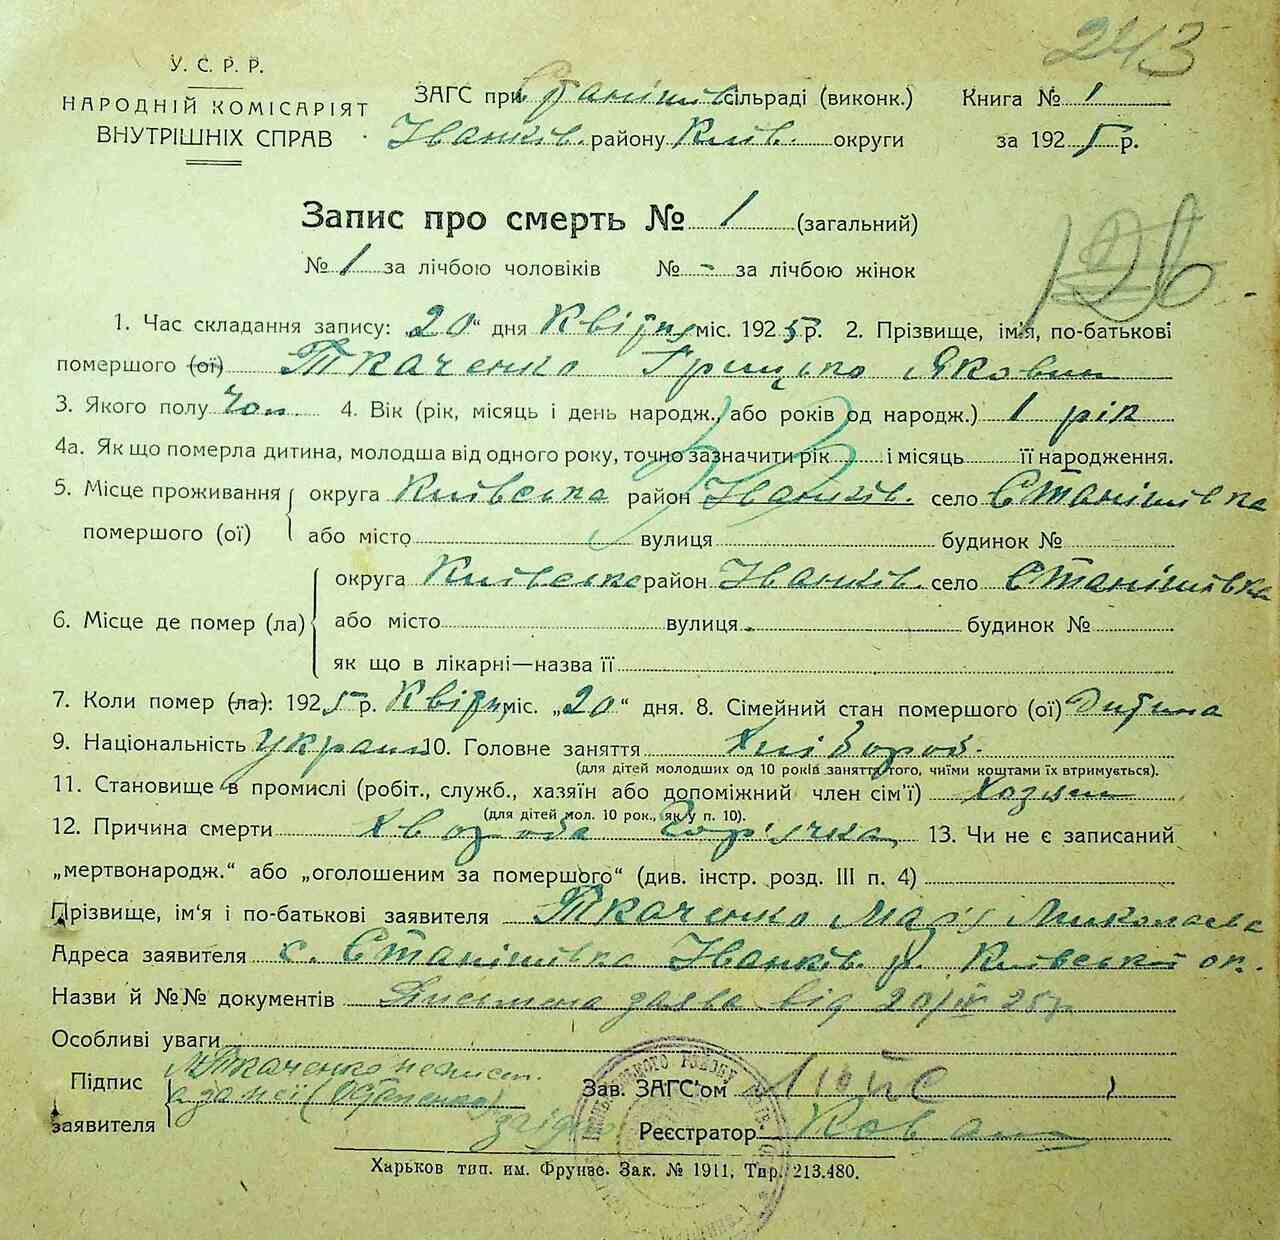 243
У. С. Р. Р.
НАРОДНІЙ КОМІСАРІЯТ
ВНУТРІШНІХ СПРАВ
ЗАГС при Станішів сільраді (виконк.) Книга № 1
Іванків. району Київ. округи за 1925 р.
Запис про смерть № 1 (загальний)
№ 1 за лічбою чоловіків № - за лічбою жінок
126
1. Час складання запису: „20“ дня Квітня міс. 1925 р. 2. Прізвище, ім'я, по-батькові
помершого (ої) Ткаченко Грицько Якович
3. Якого полу Чол. 4. Вік (рік, місяць і день народж., або років од народж.) 1 рік
4а. Як що померла дитина, молодша від одного року, точно зазначити рік і місяць її народження.
5. Місце проживання помершого (ої) округа Київська район Іванків. село Станішівка
або місто вулиця будинок №
6. Місце де помер (ла) округа Київська район Іванків. село Станішівка
або місто вулиця будинок №
як що в лікарні—назва її
7. Коли помер (ла): 1925 р. Квітня міс. „20“ дня. 8. Сімейний стан помершого (ої) Дитина
9. Національність Україн 10. Головне заняття Хлібороб.
(для дітей молодших од 10 років заняття того, чиїми коштами їх втримується).
11. Становище в промислі (робіт., служб., хазяїн або допоміжний член сім'ї) Хозяїн
(для дітей мол. 10 рок., як у п. 10).
12. Причина смерти Хвороба Гор'ячка 13. Чи не є записаний
„мертвонародж.“ або „оголошеним за помершого“ (див. інстр. розд. III п. 4)
Прізвище, ім'я і по-батькові заявителя Ткаченко Марія Миколаєва
Адреса заявителя с. Станішівка Іванків. р. Київської ок.
Назви й №№ документів Письмена заява від 20/IV 25 р
Особливі уваги
Підпис заявителя М Ткаченко неписм.
а за неї (Остапенко)
Зав. ЗАГС'ом
Реєстратор
Харьков тип. им. Фрунзе. Зак. № 1911, Тир. 213.480.